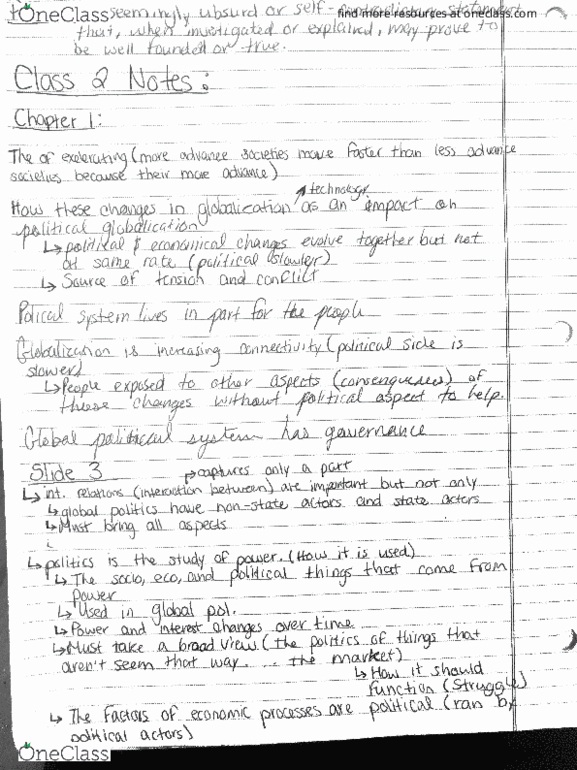 OneClass
find more resources at oneclass.com
seemingly absurd or self-
that, when investigated or explained, may prove to
be well founded or true.
Class 2 Notes:
Chapter 1:
The of exelerating (more advance societies move faster than less advance
societies because their more advance)
technology
How these changes in globalization as an impact on
political globalication
↳ political & economical changes evolve together but not
at same rate (political slower)
↳ Source of tension and conflict
Polical system lives in part for the people
Globalization is increasing connectivity (political side is
slower)
↳ People exposed to other aspects (consequences) of
these changes without political aspect to help.
Global political system has governance
Slide 3
↳ captures only a part
↳ int. relations (interaction between) are important but not only
↳ global politics have non-state actors and state actors
↳ Must bring all aspects
↳ politics is the study of power. (How it is used)
↳ The socio, eco, and political things that come from
power
↳ Used in global pol.
↳ Power and interest changes over time.
↳ Must take a broad view (the politics of things that
aren't seem that way... the market)
↳ How it should
function (struggle)
↳ The factors of economic processes are political (ran by
political actors)
OneClass